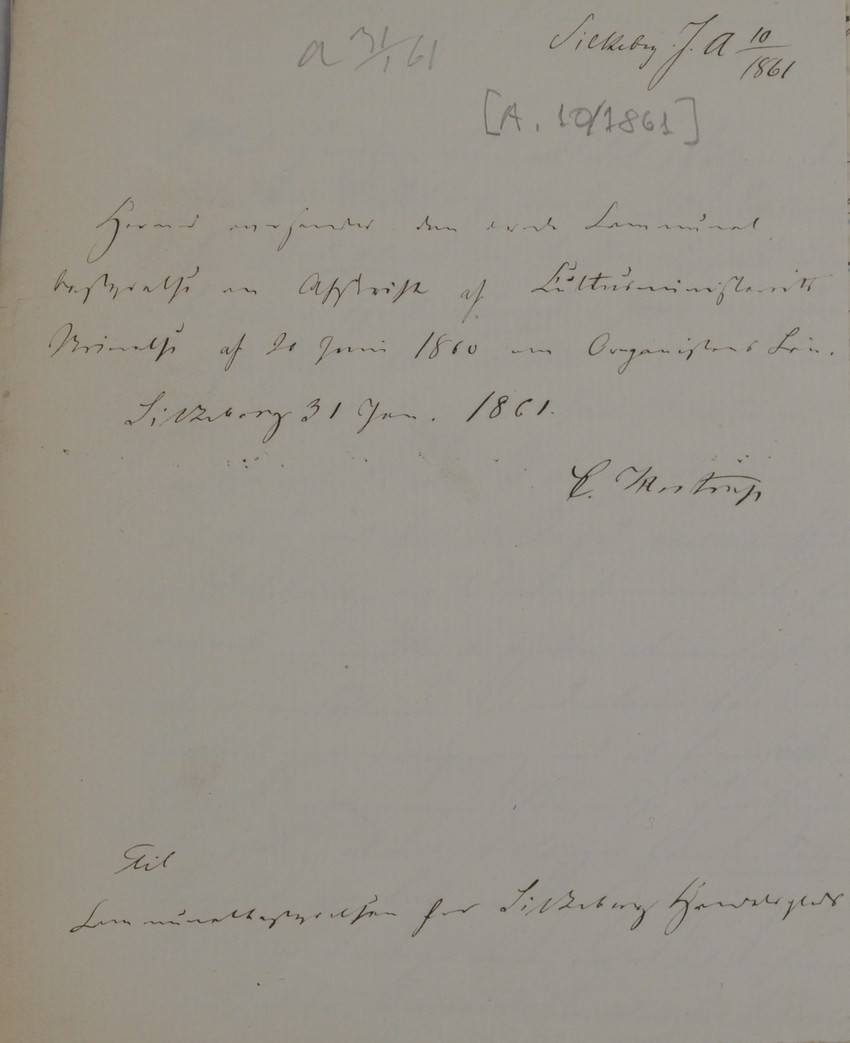 Silkeborg J. A 10/1861
a 31/1 61
[A. 10/1861]
Herved oversendes den ærede Communal
bestyrelse en Afskrift af Cultusministeriets
Skrivelse af 20 Juni 1860 om Organistens Løn.
Silkeborg 31 Jan. 1861.
C. Mostrup
Til
Communalbestyrelsen for Silkeborg Handelsplads